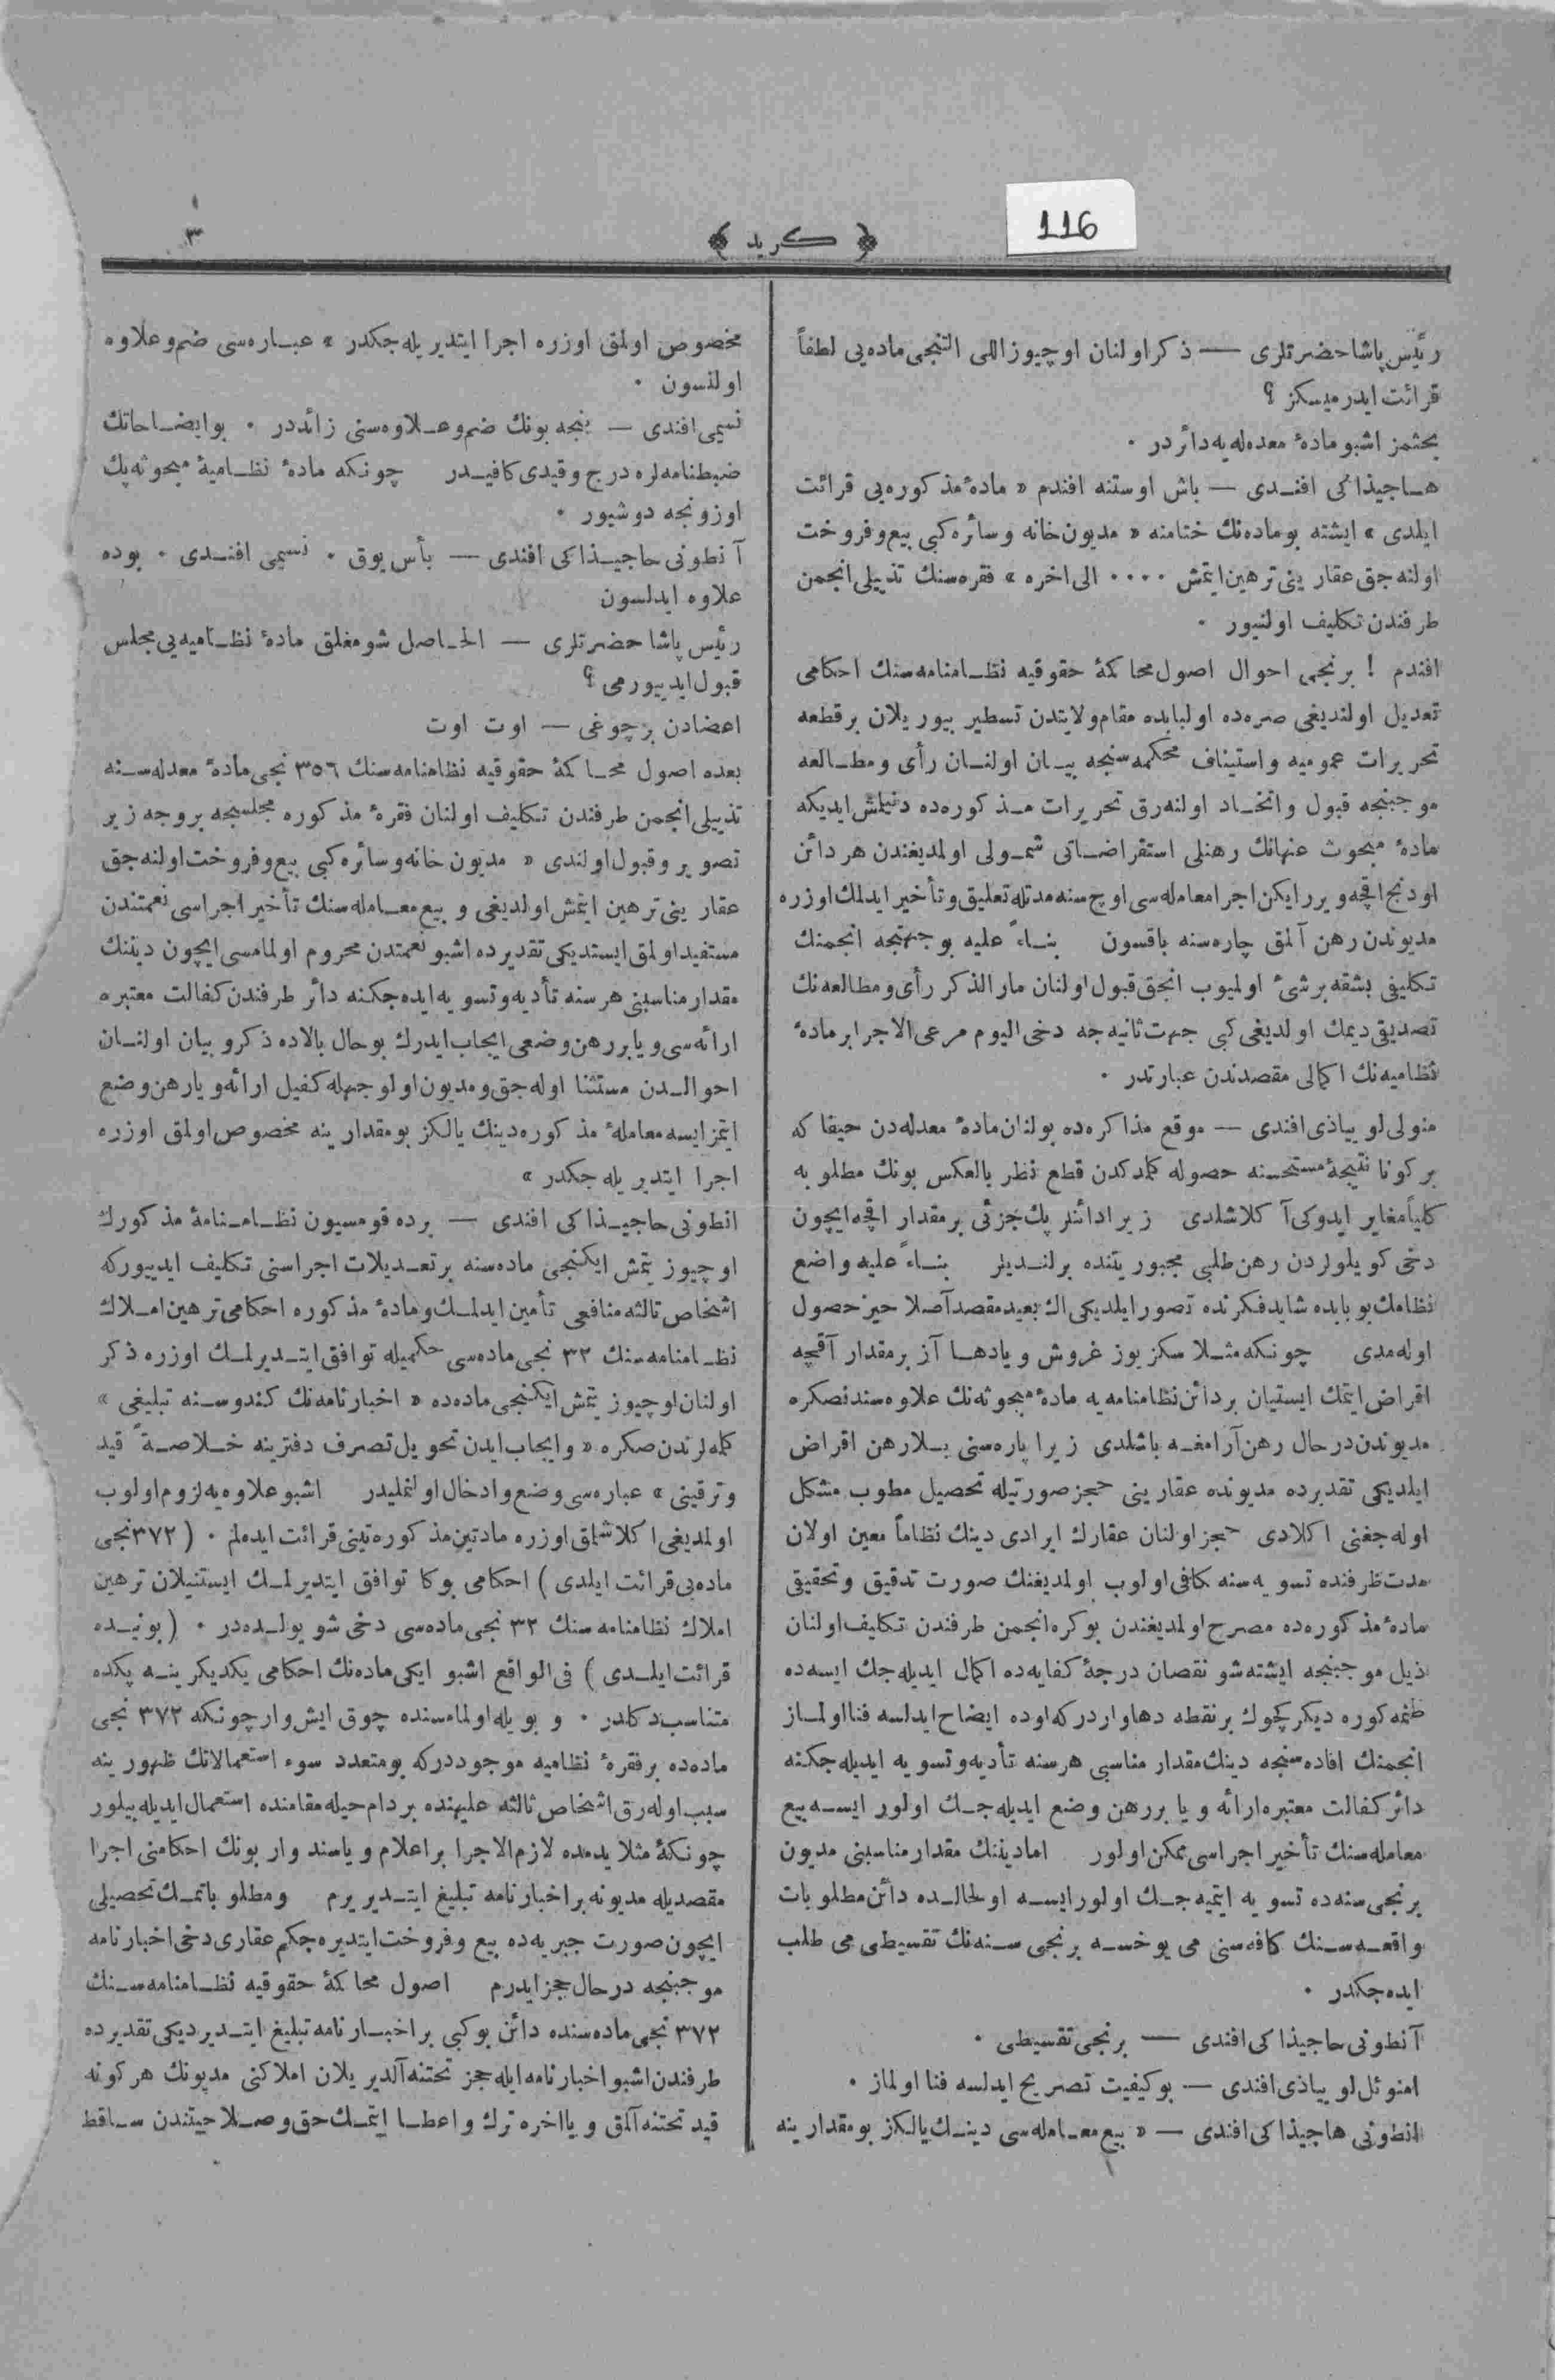 116
﴿ كريد ﴾
٣
رئيس پاشا حضرتلرى — ذكر اولنان اوچيوز اللى التنجى ماده‌يى لطفاً
قرائت ايدر ميسكز ؟
بحثمز اشبو مادهٔ معدله‌يه دائردر ٠
هاجيذاكى افندى — باش اوستنه افندم « مادهٔ مذكوره‌يى قرائت
ايلدى » ايشته بو ماده‌نك ختامنه « مديون خانه و سائره كبى بيع و فروخت
اولنه‌جق عقارينى ترهين ايتمش ٠٠٠٠ الى اخره » فقره‌سنك تذييلى انجمن
طرفندن تكليف اولنيور ٠
افندم ! برنجى احوال اصول محاكمهٔ حقوقيه نظامنامه‌سنك احكامى
تعديل اولنديغى صره‌ده اولبابده مقام ولايتدن تسطير بيوريلان برقطعه
تحريرات عموميه و استيناف محكمه‌سنجه بيان اولنان رأى و مطالعه
موجبنجه قبول و اتخاد اولنه‌رق تحريرات مذكوره‌ده دنيلمش ايديكه
مادهٔ مبحوث عنهانك رهنلى استقراضاتى شمولى اولمديغندن هر دائن
اودنج اقچه ويرر ايكن اجرا معامله‌سى اوچ سنه مدتله تعليق و تأخير ايدلمك اوزره
مديوندن رهن آلمق چاره‌سنه باقسون بناءً عليه بو جهتجه انجمنك
تكليفى بشقه برشئ اولميوب انجق قبول اولنان مار الذكر رأى و مطالعه‌نك
تصديقى ديمك اولديغى كبى جهت ثانيه‌جه دخى اليوم مرعى الاجرا بر مادهٔ
نظاميه‌نك اكمالى مقصدندن عبارتدر ٠
منولى لو بياذى افندى — موقع مذاكره‌ده بولنان مادهٔ معدله‌دن حيفا كه
بر كونا نتيجهٔ مستحسنه حصوله كلمدكدن قطع نظر بالعكس بونك مطلوبه
كلياً مغاير ايدوكى آ كلاشلدى زيرا دائنلر پك جزئى بر مقدار اقچه ايچون
دخى كويلولردن رهن طلبى مجبوريتنده برلنديلر بناءً عليه واضع
نظامك بو بابده شايد فكرنده تصور ايلديكى اك بعيد مقصد آصلا حيز حصول
اوله‌مدى چونكه مثلا سكز يوز غروش و يا دها آز بر مقدار آقچه
اقراض ايتمك ايستيان بر دائن نظامنامه‌يه مادهٔ مبحوثه‌نك علاوه‌سندنصكره
مديوندن درحال رهن آرامغه باشلدى زيرا پاره‌سنى بلا رهن اقراض
ايلديكى تقديرده مديونده عقارينى حجز صورتيله تحصيل مطلوب مشكل
اوله‌جغنى اكلادى حجز اولنان عقارك ايرادى دينك نظاماً معين اولان
مدت ظرفنده تسويه‌سنه كافى اولوب اولمديغنك صورت تدقيق و تحقيقى
مادهٔ مذكوره‌ده مصرح اولمديغندن بو كره انجمن طرفندن تكليف اولنان
ذيل موجبنجه ايشته شو نقصان درجهٔ كفايه‌ده اكمال ايديله‌جك ايسه‌ده
ظنمه كوره ديكر كچوك بر نقطه دها واردركه اوده ايضاح ايدلسه فنا اولماز
انجمنك افاده‌سنجه دينك مقدار مناسبى هر سنه تأديه و تسويه ايديله‌جكنه
دائر كفالت معتبره ارائه و يا بر رهن وضع ايديله‌جك اولور ايسه بيع
معامله‌سنك تأخير اجراسى ممكن اولور اما ديننك مقدار مناسبنى مديون
برنجى سنه‌ده تسويه ايتميه‌جك اولور ايسه اولحالده دائن مطلوبات
واقعه‌سنك كافه‌سنى مى يوخسه برنجى سنه‌نك تقسيطى مى طلب
ايده‌جكدر ٠
آنطونى حاجيذاكى افندى — برنجى تقسيطى ٠
امنوئل لو بياذى افندى — بو كيفيت تصريح ايدلسه فنا اولماز ٠
انطونى هاجيذاكى افندى — « بيع معامله‌سى دينك يالكز بو مقدارينه
مخصوص اولمق اوزره اجرا ايتديريله‌جكدر » عباره‌سى ضم و علاوه
اولنسون ٠
نسيمى افندى — بنجه بونك ضم و علاوه‌سنى زائددر ٠ بو ايضاحاتك
ضبطنامه‌لره درج و قيدى كافيدر چونكه مادهٔ نظاميهٔ مبحوثه پك
اوزونجه دوشيور ٠
آنطونى حاجيذاكى افندى — بأس يوق ٠ نسيمى افندى ٠ بوده
علاوه ايدلسون
رئيس پاشا حضرتلرى — الحاصل شو مغلق مادهٔ نظاميه‌يى مجلس
قبول ايدييورمى ؟
اعضادن برچوغى — اوت اوت
بعده اصول محاكمهٔ حقوقيه نظامنامه‌سنك ٣٥٦ نجى مادهٔ معدله‌سنه
تذييلى انجمن طرفندن تكليف اولنان فقرهٔ مذكوره مجلسجه بروجه زير
تصوير و قبول اولندى « مديون خانه و سائره كبى بيع و فروخت اولنه‌جق
عقارينى ترهين ايتمش اولديغى و بيع معامله‌سنك تأخير اجراسى نعمتندن
مستفيد اولمق ايستديكى تقديرده اشبو نعمتدن محروم اولمامسى ايچون ديننك
مقدار مناسبنى هر سنه تأديه و تسويه ايده‌جكنه دائر طرفندن كفالت معتبره
ارائه‌سى و يا بر رهن وضعى ايجاب ايدرك بو حال بالاده ذكر و بيان اولنان
احوالدن مستثنا اوله‌جق و مديون اولوجهله كفيل ارائه و يا رهن وضع
ايتمز ايسه معاملهٔ مذكوره دينك يالكز بو مقدارينه مخصوص اولمق اوزره
اجرا ايتديريله‌جكدر »
انطونى حاجيذاكى افندى — برده قومسيون نظامنامهٔ مذكورك
اوچيوز يتمش ايكنجى ماده‌سنه بر تعديلات اجراسنى تكليف ايدييوركه
اشخاص ثالثه منافعى تأمين ايدلمك و مادهٔ مذكوره احكامى ترهين املاك
نظامنامه‌سنك ٣٢ نجى ماده‌سى حكميله توافق ايتديرلمك اوزره ذكر
اولنان اوچيوز يتمش ايكنجى ماده‌ده « اخبارنامه‌نك كندوسنه تبليغى »
كله‌لرندن صكره « و ايجاب ايدن تحويل تصرف دفترينه خلاصةً قيد
و ترقينى » عباره‌سى وضع و ادخال اولنمليدر اشبو علاوه‌يه لزوم اولوب
اولمديغى اكلاشلمق اوزره مادتين مذكوره‌تينى قرائت ايده‌لم ٠ ( ٣٧٢ نجى
ماده‌يى قرائت ايلدى ) احكامى بوكا توافق ايتديرلمك ايستنيلان ترهين
املاك نظامنامه‌سنك ٣٢ نجى ماده‌سى دخى شو يولده‌در ٠ ( بونيده
قرائت ايلدى ) فى الواقع اشبو ايكى ماده‌نك احكامى يكديكرينه پكده
متناسب دكلدر ٠ و بويله اولمامسنده چوق ايش وار چونكه ٣٧٢ نجى
ماده‌ده بر فقرهٔ نظاميه موجوددركه بو متعدد سوء استعمالاتك ظهورينه
سبب اوله‌رق اشخاص ثالثه عليهنده بر دام حيله مقامنده استعمال ايديله‌بيلور
چونكهٔ مثلا يدمده لازم الاجرا بر اعلام و يا سند وار بونك احكامنى اجرا
مقصديله مديونه بر اخبارنامه تبليغ ايتديريرم و مطلوباتمك تحصيلى
ايچون صورت جبريه‌ده بيع و فروخت ايتديره‌جكم عقارى دخى اخبارنامه
موجبنجه درحال حجز ايدرم اصول محاكمهٔ حقوقيه نظامنامه‌سنك
٣٧٢ نجى ماده‌سنده دائن بو كبى بر اخبارنامه تبليغ ايتديرديكى تقديرده
طرفندن اشبو اخبارنامه ايله حجز تحتنه آلديريلان املاكنى مديونك هر كونه
قيد تحتنه آلمق و يا اخره ترك و اعطا ايتمك حق و صلاحيتندن ساقط